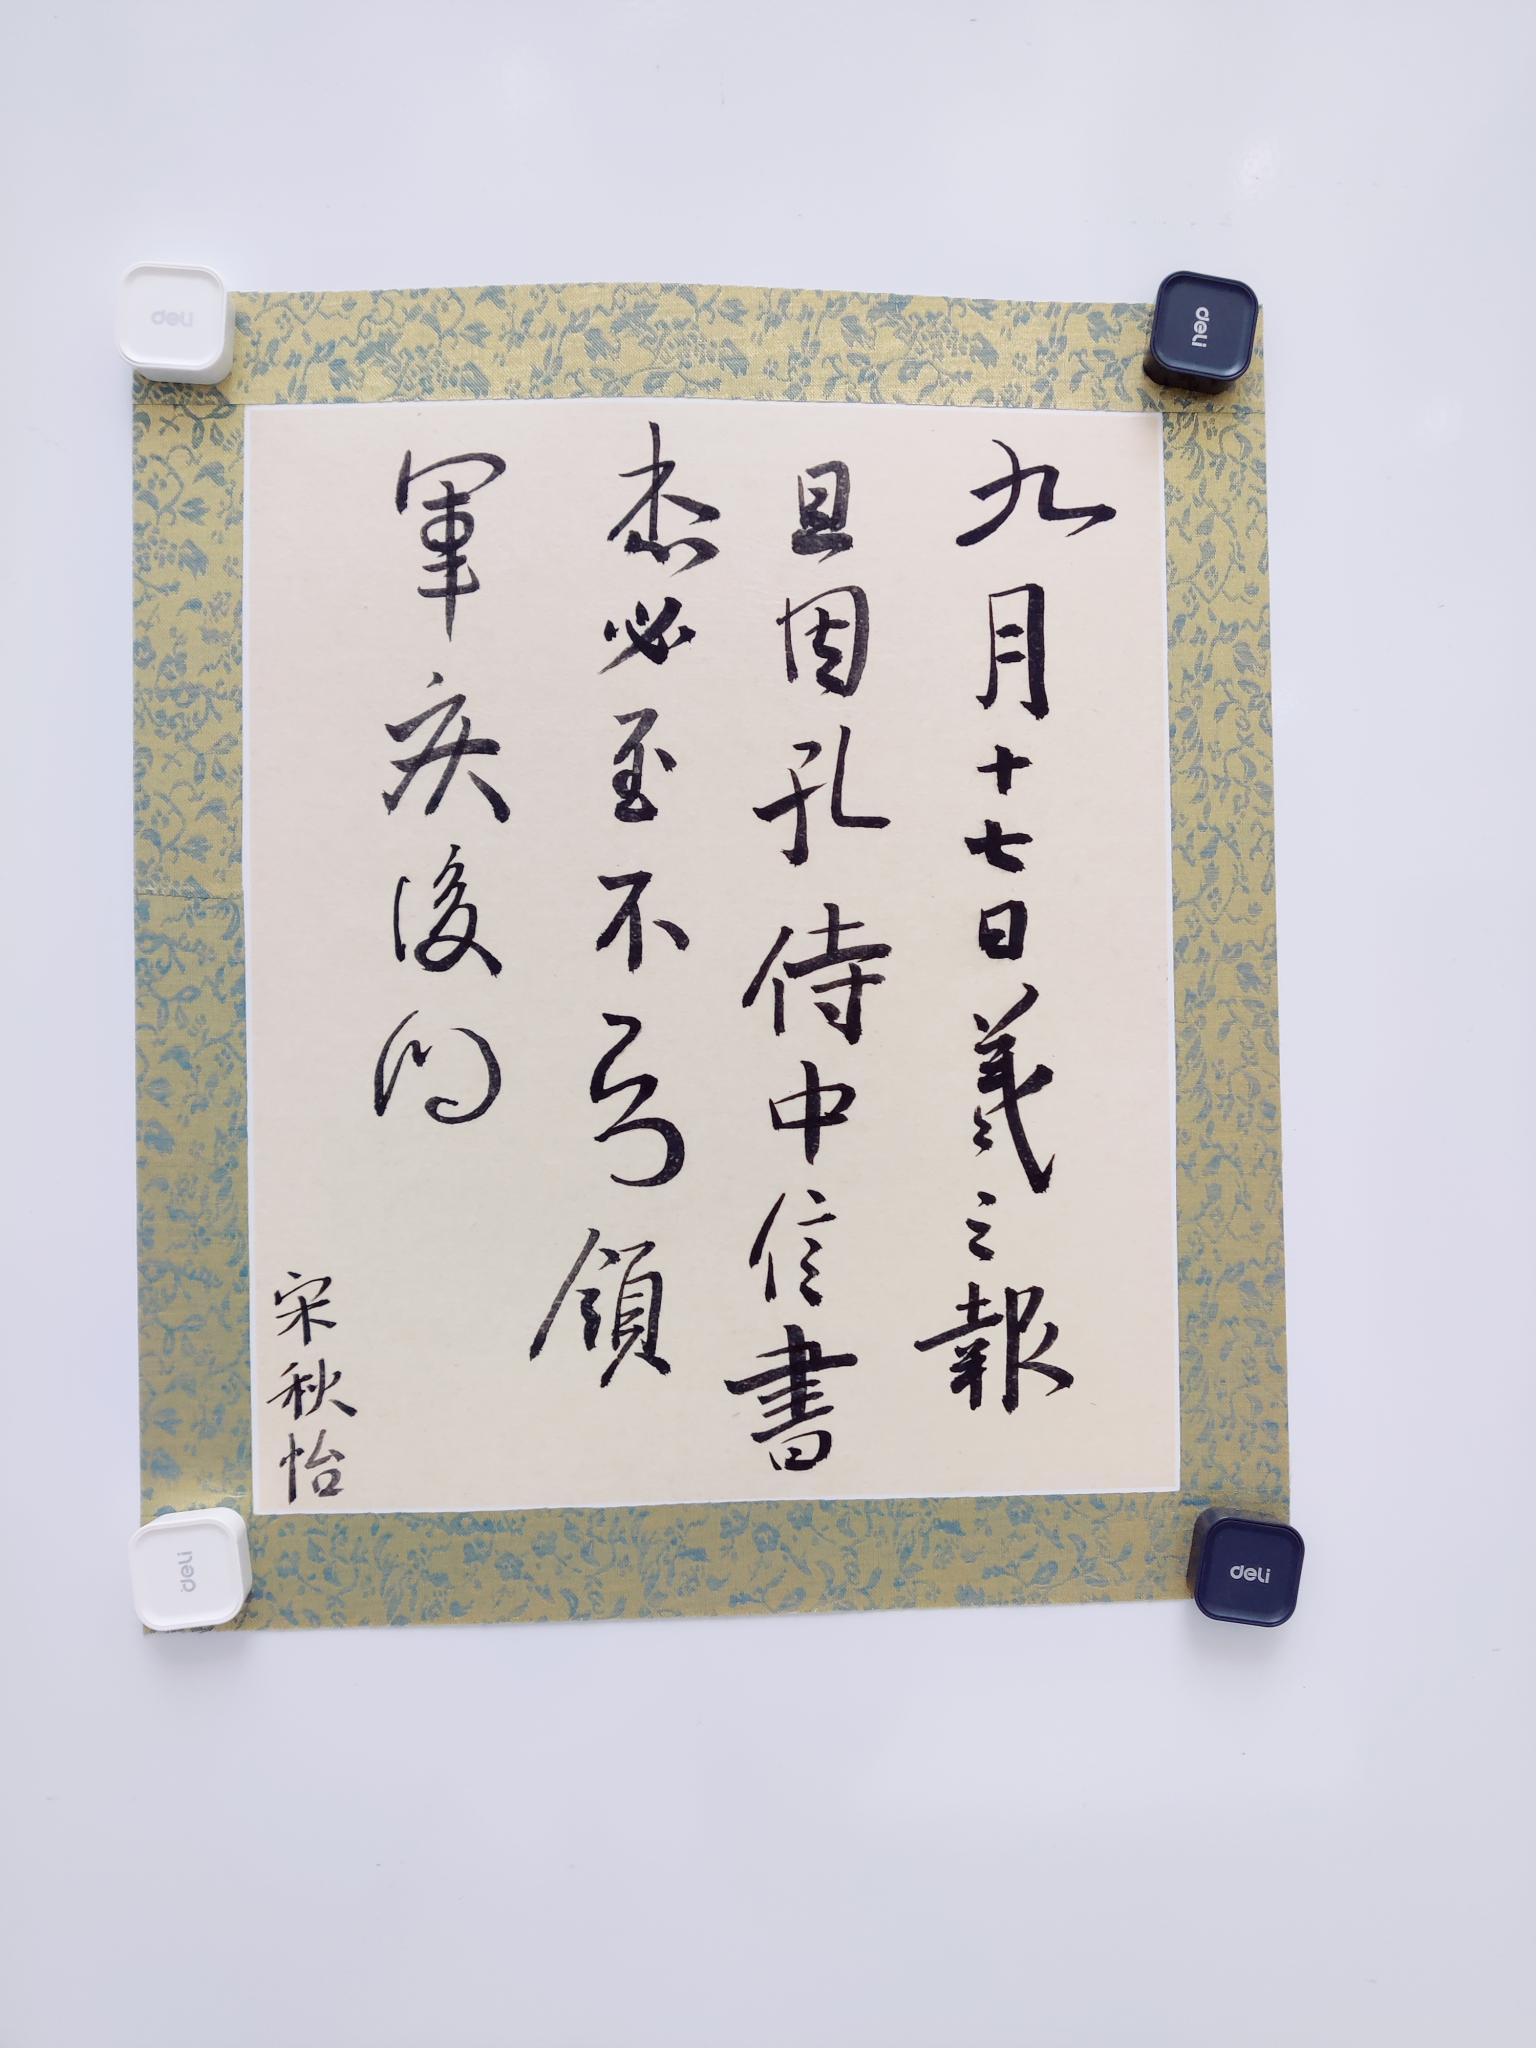 九月十七日羲之報
且因孔侍中信書
想必至不知領
軍疾後問
宋秋怡
deli
deli
deli
deli